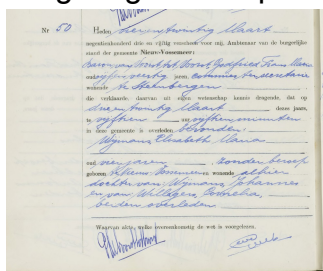 Nr 50 Heden, zes en twintig Maart
negentienhonderd drie en vijftig verscheen voor mij, Ambtenaar van de burgerlijke
stand der gemeente Nieuw-Vossemeer:
Godfried Frans Maria
oud vijf en veertig jaren, commies ter secretarie
wonende te Steenbergen
die verklaarde, daarvan uit eigen wetenschap kennis dragende, dat op
drie en twintig Maart dezes jaars,
te vijftien uur vijftien minuten
in deze gemeente is overleden,
Wijmans Elisabeth Maria
oud jaren, zonder beroep
geboren te Nieuw-Vossemeer en wonende alhier
dochter van Wijmans, Johannes
en van Willegers, Cornelia,
beiden overleden
Waarvan akte, welke overeenkomstig de wet is voorgelezen.